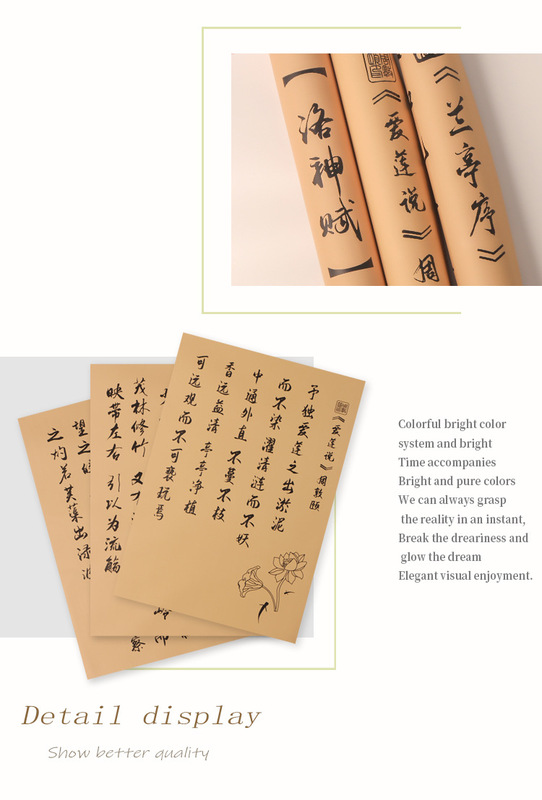 【洛神赋】
《爱莲说》周
《兰亭序》
《爱莲说》周敦颐
予独爱莲之出淤泥
而不染濯清涟而不妖
中通外直不蔓不枝
香远益清亭亭净植
可远观而不可亵玩焉
茂林修竹 又
映带左右 引以为流觞
望之
之 灼若芙蕖出渌
Colorful bright color
system and bright
Time accompanies
Bright and pure colors
We can always grasp
the reality in an instant,
Break the dreariness and
glow the dream
Elegant visual enjoyment.
Detail display
Show better quality